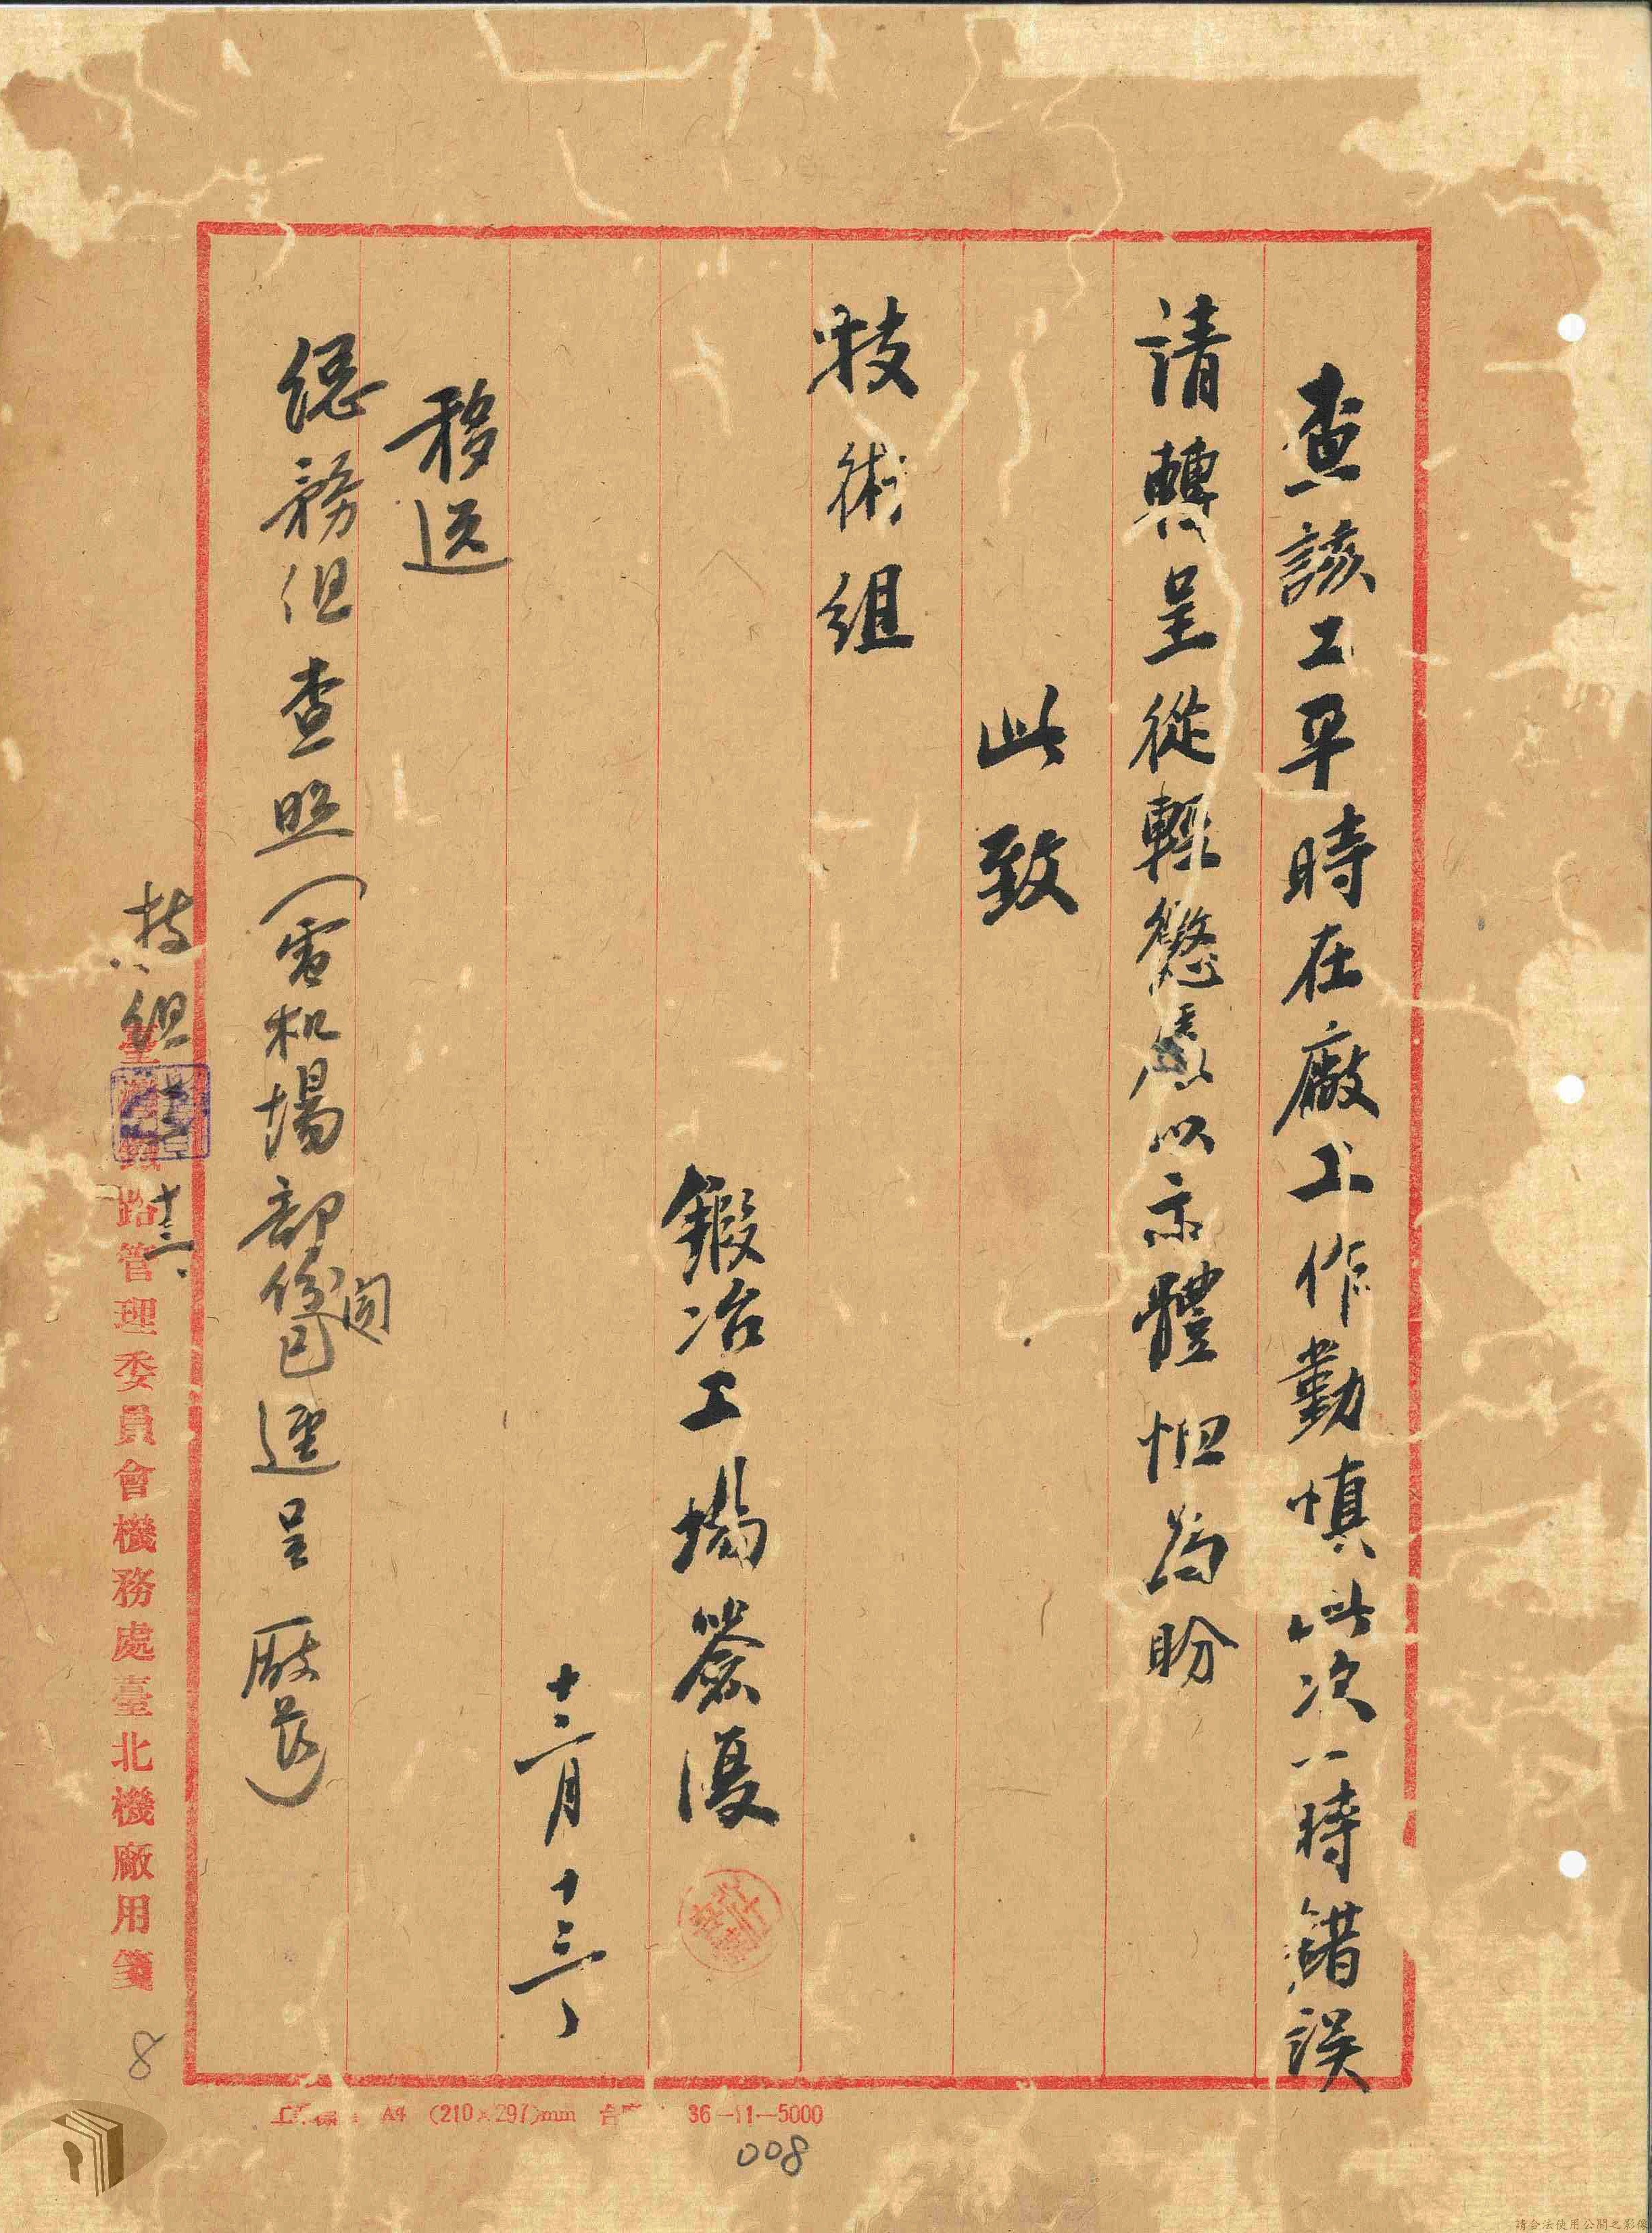 查該工平時在廠工作勤慎此次一時錯誤
請轉呈從輕懲處以示體恤為盼
此致
技術組
鍛冶工場簽復
十二月十三、
移送
總務組查照(電机場部份已逕呈廠長)
技組
十二、
臺灣鐵路管理委員會機務處臺北機廠用箋
8
A4 (210×297)mm
36-11-5000
008
請合法使用公開之影像